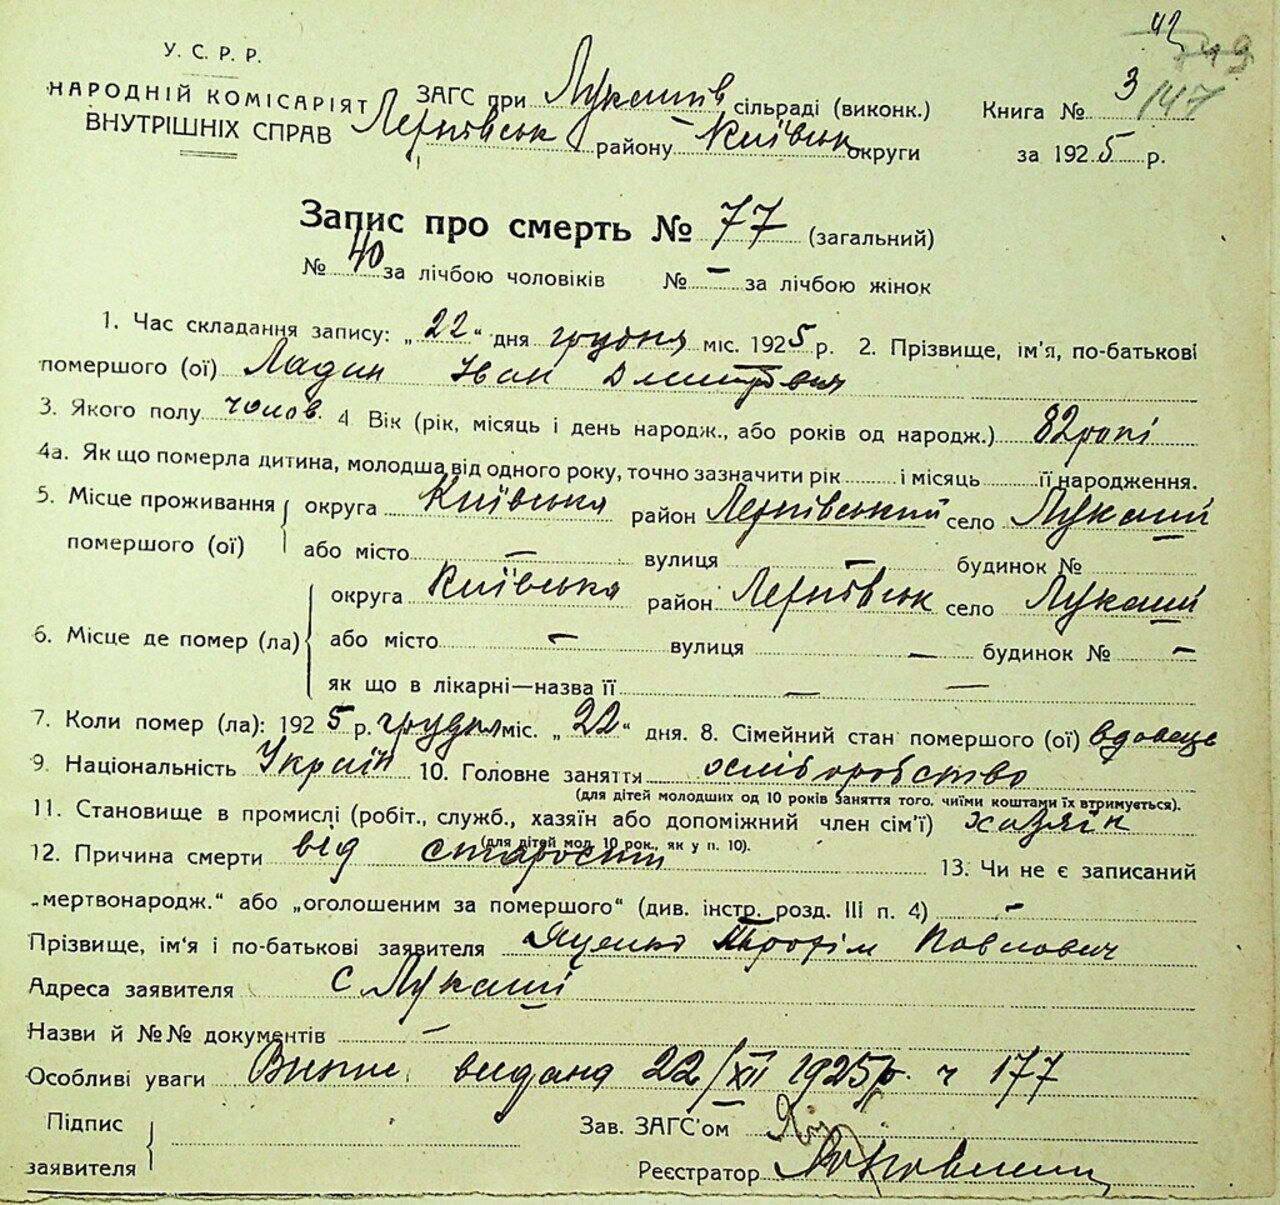 42
У. С. Р. Р.
НАРОДНІЙ КОМІСАРІЯТ
ВНУТРІШНІХ СПРАВ
ЗАГС при Лукашів сільраді (виконк.)
районy Київськ округи
Книга № 3
за 1925 р.
Запис про смерть № 77 (загальний)
№ 40 за лічбою чоловіків № – за лічбою жінок
1. Час складання запису: „22“ дня грудня міс. 1925 р. 2. Прізвище, ім'я, по-батькові
помершого (ої) Ладин Іван Дмитрович
3. Якого полу чолов. 4 Вік (рік, місяць і день народж., або років од народж.) 82 роки
4а. Як що померла дитина, молодша від одного року, точно зазначити рік і місяць її народження.
5. Місце проживання помершого (ої) округа Київська район село Лукаші
або місто – вулиця – будинок №
6. Місце де помер (ла) округа Київська район село Лукаші
або місто – вулиця – будинок № –
як що в лікарні—назва її — —
7. Коли помер (ла): 1925 р. грудня міс. „22“ дня. 8. Сімейний стан помершого (ої) вдовець
9. Національність Україн 10. Головне заняття хліборобство
(для дітей молодших од 10 років заняття того, чиїми коштами їх втримується).
11. Становище в промислі (робіт., служб., хазяїн або допоміжний член сім'ї) хазяїн
(для дітей мол. 10 рок., як у п. 10).
12. Причина смерти від старости 13. Чи не є записаний
„мертвонародж.“ або „оголошеним за помершого“ (див. інстр. розд. III п. 4) –
Прізвище, ім'я і по-батькові заявителя Яценко Трофім Павлович
Адреса заявителя с. Лукаші
Назви й №№ документів –
Особливі уваги Випис видано 22/XII 1925 р. ч 177
Підпис заявителя
Зав. ЗАГС'ом
Реєстратор